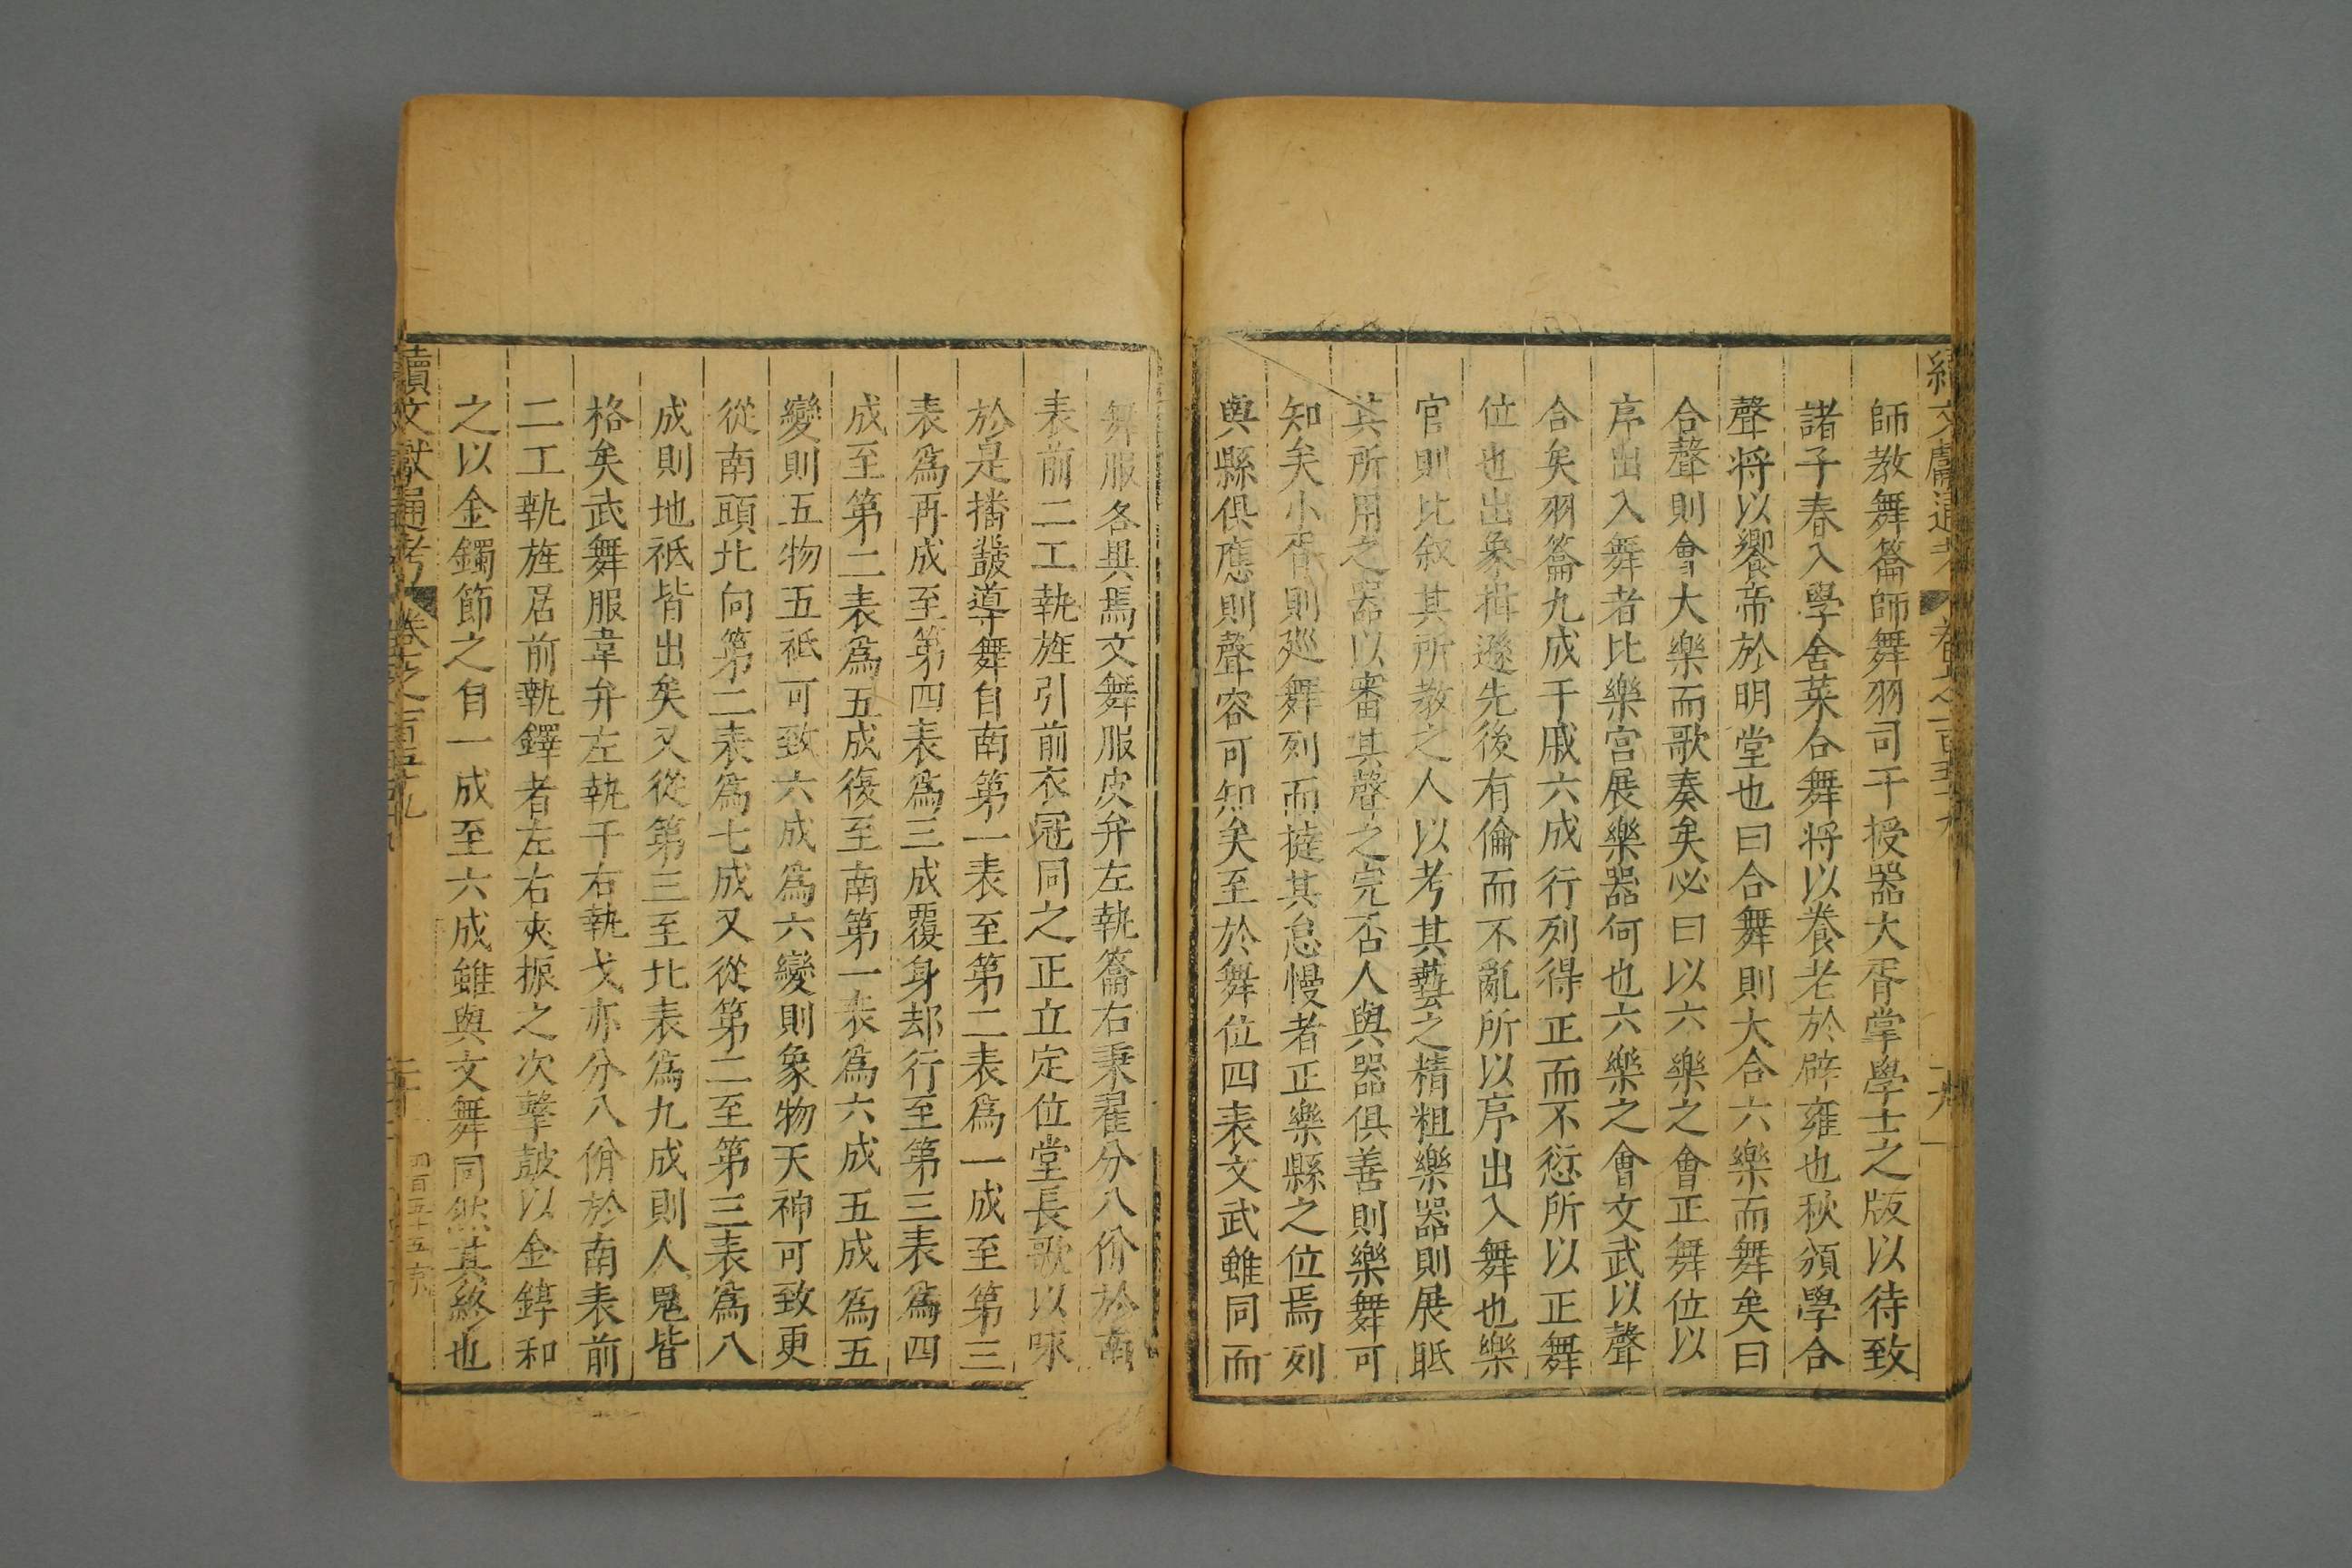 師教舞籥師舞羽司干授器大胥掌學士之版以待致
諸子春入學舍菜合舞將以養老於辟雍也秋頒學合
聲將以饗帝於明堂也曰合舞則大合六樂而舞矣曰
合聲則會大樂而歌奏矣必曰以六樂之會正舞位以
序出入舞者比樂宫展樂器何也六樂之會文武以聲
合矣羽籥九成干戚六成行列得正而不愆所以正舞
位也出象揖遜先後有倫而不亂所以序出入舞也樂
官則比叙其所教之人以考其藝之精粗樂器則展眂
其所用之器以審其聲之完否人與器俱善則樂舞可
知矣小胥則廵舞列而撻其怠慢者正樂縣之位焉列
與縣俱應則聲容可知矣至於舞位四表文武雖同而
舞服各異焉文舞服皮弁左執籥右秉翟分八佾於南
表前二工執旌引前衣冠同之正立定位堂長歌以咏
於是播鼗導舞自南第一表至第二表爲一成至第三
表爲再成至第四表爲三成覆身却行至第三表爲四
成至第二表爲五成復至南第一表爲六成五成爲五
變則五物五祇可致六成爲六變則象物天神可致更
從南頭北向第二表爲七成又從第二至第三表爲八
成則地祇皆出矣又從第三至北表爲九成則人鬼皆
格矣武舞服韋弁左執干右執戈亦分八佾於南表前
二工執旌居前執鐸者左右夾振之次擊鼓以金錞和
之以金鐲節之自一成至六成雖與文舞同然其終也
續文獻通考 卷之一百五十九